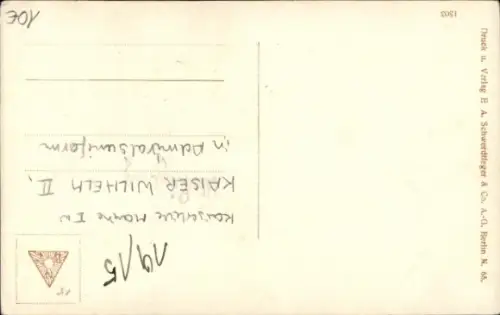 1502
Druck u. Verlag E. A. Schwerdtfeger & Co. A.-G. Berlin N. 65.
10€
19/15
Kaiserliche Marine I W
KAISER WILHELM II,
in Admiralsuniform
15